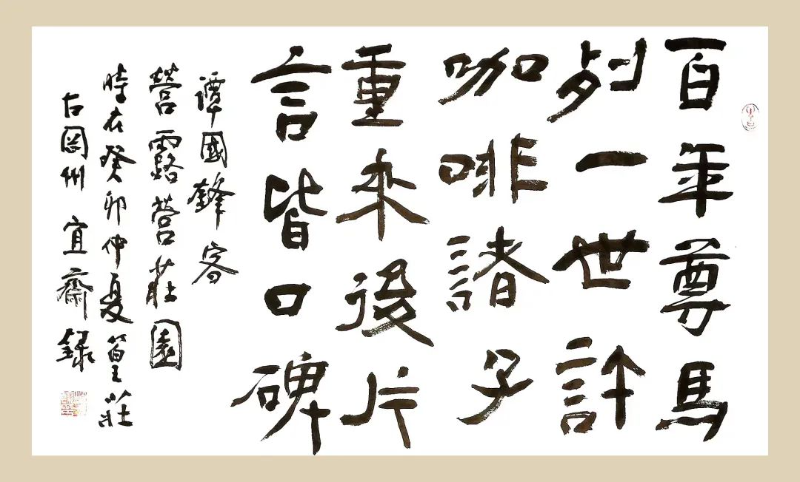 百年尊馬
列一世許
咖啡諸子
重來後片
言皆口碑
譚國鋒客
營露營莊園
時在癸卯仲夏篁莊
古岡州宜齋録